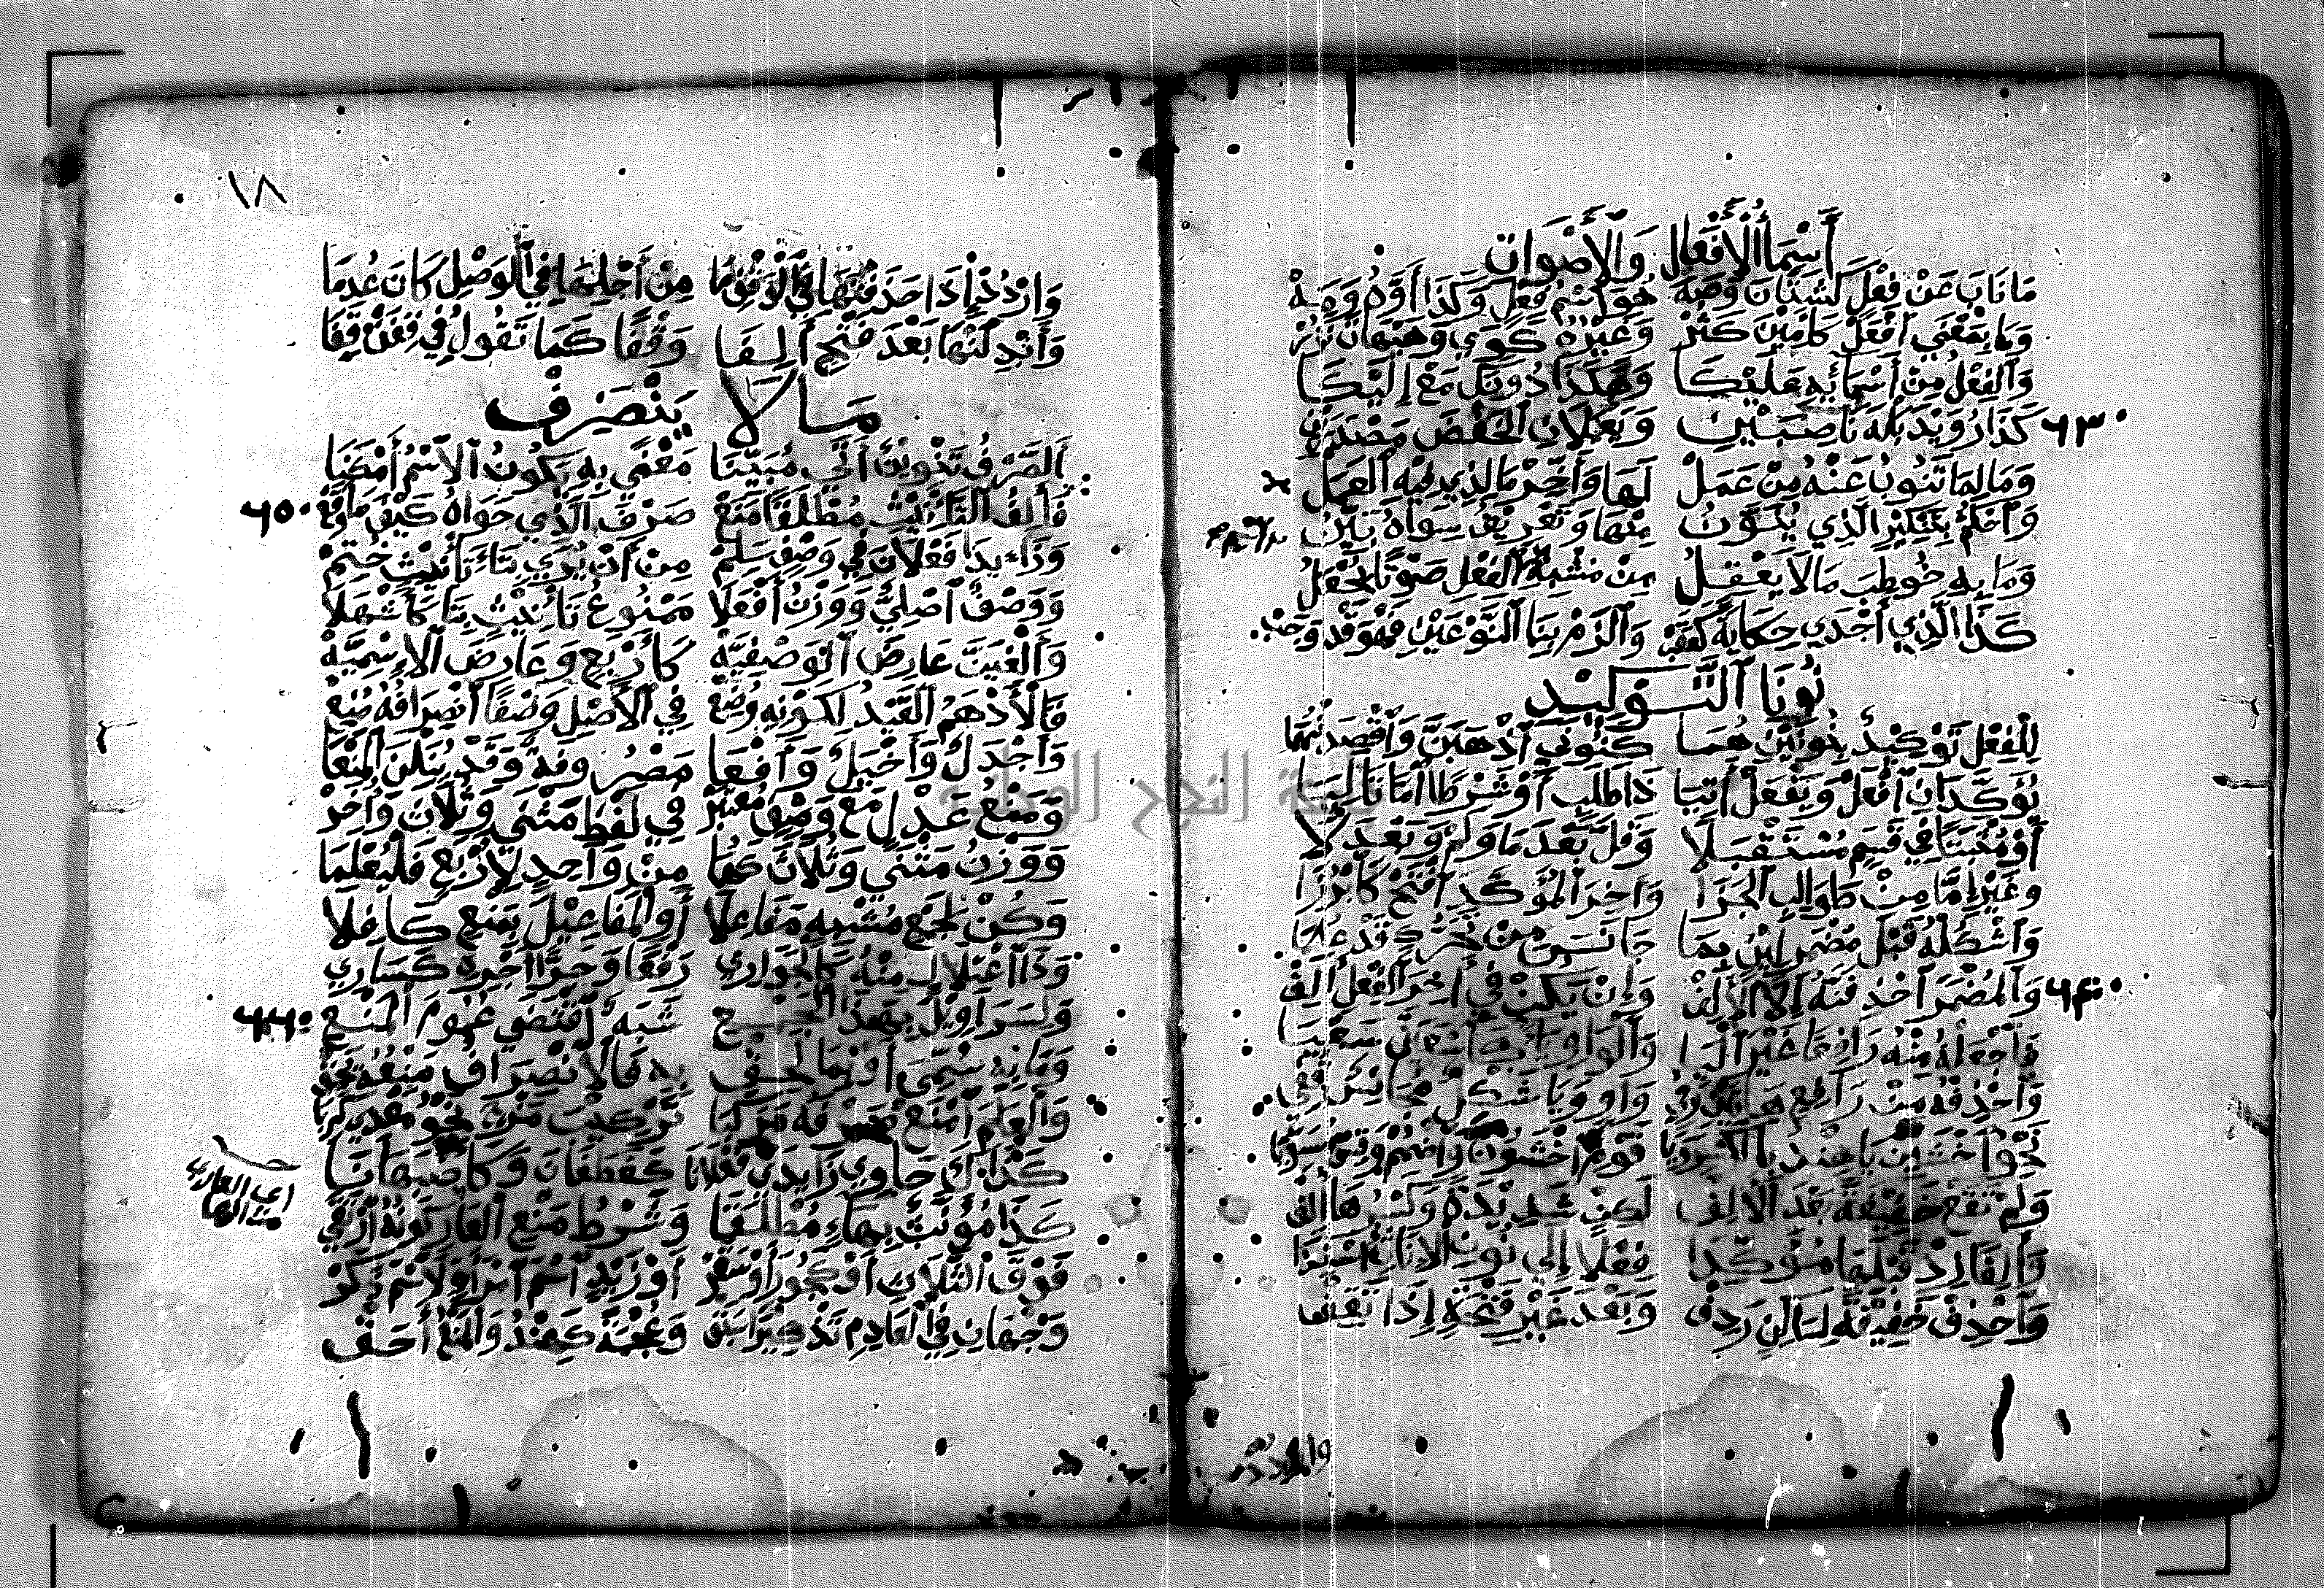 أَسْمَاءُ الْأَفْعَالِ وَالْأَصْوَاتِ
مَا نَابَ عَنْ فِعْلٍ كَشَتَّانَ وَصَهْ هُوَ اسْمُ فِعْلٍ وَكَذَا أَوَّهْ وَمَهْ
وَمَا بِمَعْنَى افْعَلْ كَآمِينَ كَثُرْ وَغَيْرُهُ كَوَيْ وَهَيْهَاتَ نَزُرْ
وَالْفِعْلُ مِنْ أَسْمَائِهِ عَلَيْكَا وَهَكَذَا دُونَكَ مَعْ إِلَيْكَا
٦٣٠ كَذَا رُوَيْدَ بَلْهَ نَاصِبَيْنِ وَيَعْمَلَانِ الْخَفْضَ مَصْدَرَيْنِ
وَمَا لِمَا تَنُوبُ عَنْهُ مِنْ عَمَلْ لَهَا وَأَخِّرْ مَا لِذِي فِيهِ الْعَمَلْ
وَاحْكُمْ بِتَنْكِيرِ الَّذِي يُنَوَّنُ مِنْهَا وَتَعْرِيفُ سِوَاهُ بَيِّنُ
وَمَا بِهِ خُوطِبَ مَا لَا يَعْقِلُ مِنْ مُشْبِهِ اسْمِ الْفِعْلِ صَوْتًا يُجْعَلُ
كَذَا الَّذِي أَجْدَى حِكَايَةً كَقَبْ وَالْزَمْ بِنَا النَّوْعَيْنِ فَهْوَ قَدْ وَجَبْ
نُونَا التَّوْكِيدِ
لِلْفِعْلِ تَوْكِيدٌ بِنُونَيْنِ هُمَا كَنُونَيِ اذْهَبَنَّ وَاقْصِدَنْهُمَا
يُؤَكِّدَانِ افْعَلْ وَيَفْعَلْ آتِيَا ذَا طَلَبٍ أَوْ شَرْطًا امَّا تَالِيَا
أَوْ مُثْبَتًا فِي قَسَمٍ مُسْتَقْبَلَا وَقَلَّ بَعْدَ مَا وَلَمْ وَبَعْدَ لَا
وَغَيْرِ إِمَّا مِنْ طَوَالِبِ الْجَزَا وَآخِرَ الْمُؤَكَّدِ افْتَحْ كَابْرُزَا
وَاشْكُلْهُ قَبْلَ مُضْمَرٍ لَيْنٍ بِمَا جَانَسَ مِنْ تَحَرُّكٍ قَدْ عُلِمَا
٦٤٠ وَالْمُضْمَرَ احْذِفَنَّهُ إِلَّا الْأَلِفْ وَإِنْ يَكُنْ فِي آخِرِ الْفِعْلِ أَلِفْ
فَاجْعَلْهُ مِنْهُ رَافِعًا غَيْرَ الْيَا وَالْوَاوِ يَاءً كَاسْعَيَنَّ سَعْيَا
وَاحْذِفْهُ مِنْ رَافِعِ هَاتَيْنِ وَفِي وَاوٍ وَيَا شَكْلٌ مُجَانِسٌ قُفِي
نَحْوُ اخْشَيِنْ يَا هِنْدُ بِالْكَسْرِ وَيَا قَوْمُ اخْشَوُنْ وَاضْمُمْ وَقِسْ مُسَوِّيَا
وَلَمْ تَقَعْ خَفِيفَةٌ بَعْدَ الْأَلِفْ لَكِنْ شَدِيدَةٌ وَكَسْرُهَا أُلِفْ
وَأَلِفًا زِدْ قَبْلَهَا مُؤَكِّدَا فِعْلًا إِلَى نُونِ الْإِنَاثِ أُسْنِدَا
وَاحْذِفْ خَفِيفَةً لِسَاكِنٍ رَدِفْ وَبَعْدَ غَيْرِ فَتْحَةٍ إِذَا تَقِفْ
١٨
وَارْدُدْ إِذَا حَذَفْتَهَا فِي الْوَقْفِ مَا مِنْ أَجْلِهَا فِي الْوَصْلِ كَانَ عُدِمَا
وَأَبْدِلَنْهَا بَعْدَ فَتْحٍ أَلِفَا وَقْفًا كَمَا تَقُولُ فِي قِفَنْ قِفَا
مَا لَا يَنْصَرِفُ
الصَّرْفُ تَنْوِينٌ أَتَى مُبَيِّنَا مَعْنًى بِهِ يَكُونُ الِاسْمُ أَمْكَنَا
فَأَلِفُ التَّأْنِيثِ مُطْلَقًا مَنَعْ صَرْفَ الَّذِي حَوَاهُ كَيْفَمَا وَقَعْ ٦٥٠
وَزَائِدَا فَعْلَانَ فِي وَصْفٍ سَلِمْ مِنْ أَنْ يُرَى بِتَاءِ تَأْنِيثٍ خُتِمْ
وَوَصْفٌ أَصْلِيٌّ وَوَزْنُ أَفْعَلَا مَمْنُوعُ تَأْنِيثٍ بِتَا كَأَشْهَلَا
وَأَلْغِيَنَّ عَارِضَ الْوَصْفِيَّهْ كَأَرْبَعٍ وَعَارِضَ الْإِسْمِيَّهْ
فَالْأَدْهَمُ الْقَيْدُ لِكَوْنِهِ وُضِعْ فِي الْأَصْلِ وَصْفًا انْصِرَافُهُ مُنِعْ
وَأَجْدَلٌ وَأَخْيَلٌ وَأَفْعَى مَصْرُوفَةٌ وَقَدْ يَنَلْنَ الْمَنْعَا
وَمَنْعُ عَدْلٍ مَعَ وَصْفٍ مُعْتَبَرْ فِي لَفْظِ مَثْنَى وَثُلَاثَ وَأُخَرْ
وَوَزْنُ مَثْنَى وَثُلَاثَ كَهُمَا مِنْ وَاحِدٍ لِأَرْبَعٍ فَلْيُعْلَمَا
وَكُنْ لِجَمْعٍ مُشْبِهٍ مَفَاعِلَا أَوِ الْمَفَاعِيلَ بِمَنْعٍ كَافِلَا
وَذَا اعْتِلَالٍ مِنْهُ كَالْجَوَارِي رَفْعًا وَجَرًّا أَجْرِهِ كَسَارِي
وَلِسَرَاوِيلَ بِهَذَا الْجَمْعِ شَبَهٌ اقْتَضَى عُمُومَ الْمَنْعِ ٦٦٠
وَمَا بِهِ سُمِّيَ أَوْ بِمَا لَحِقْ بِهِ فَالِانْصِرَافُ مَنْعُهُ يَحِقْ
وَالْعَلَمَ امْنَعْ صَرْفَهُ مُرَكَّبَا تَرْكِيبَ مَزْجٍ نَحْوُ مَعْدِي كَرِبَا
كَذَاكَ حَاوِي زَائِدَيْ فَعْلَانَا كَغَطَفَانَ وَكَأَصْبَهَانَا
كَذَا مُؤَنَّثٌ بِهَاءٍ مُطْلَقَا وَشَرْطُ مَنْعِ الْعَارِ كَوْنُهُ ارْتَقَى
أي العاري من الهاء
فَوْقَ الثَّلَاثِ أَوْ كَجُورَ أَوْ سَقَرْ أَوْ زَيْدٍ اسْمَ امْرَأَةٍ لَا اسْمَ ذَكَرْ
وَجْهَانِ فِي الْعَادِمِ تَذْكِيرًا سَبَقْ وَعُجْمَةً كَهِنْدَ وَالْمَنْعُ أَحَقْ